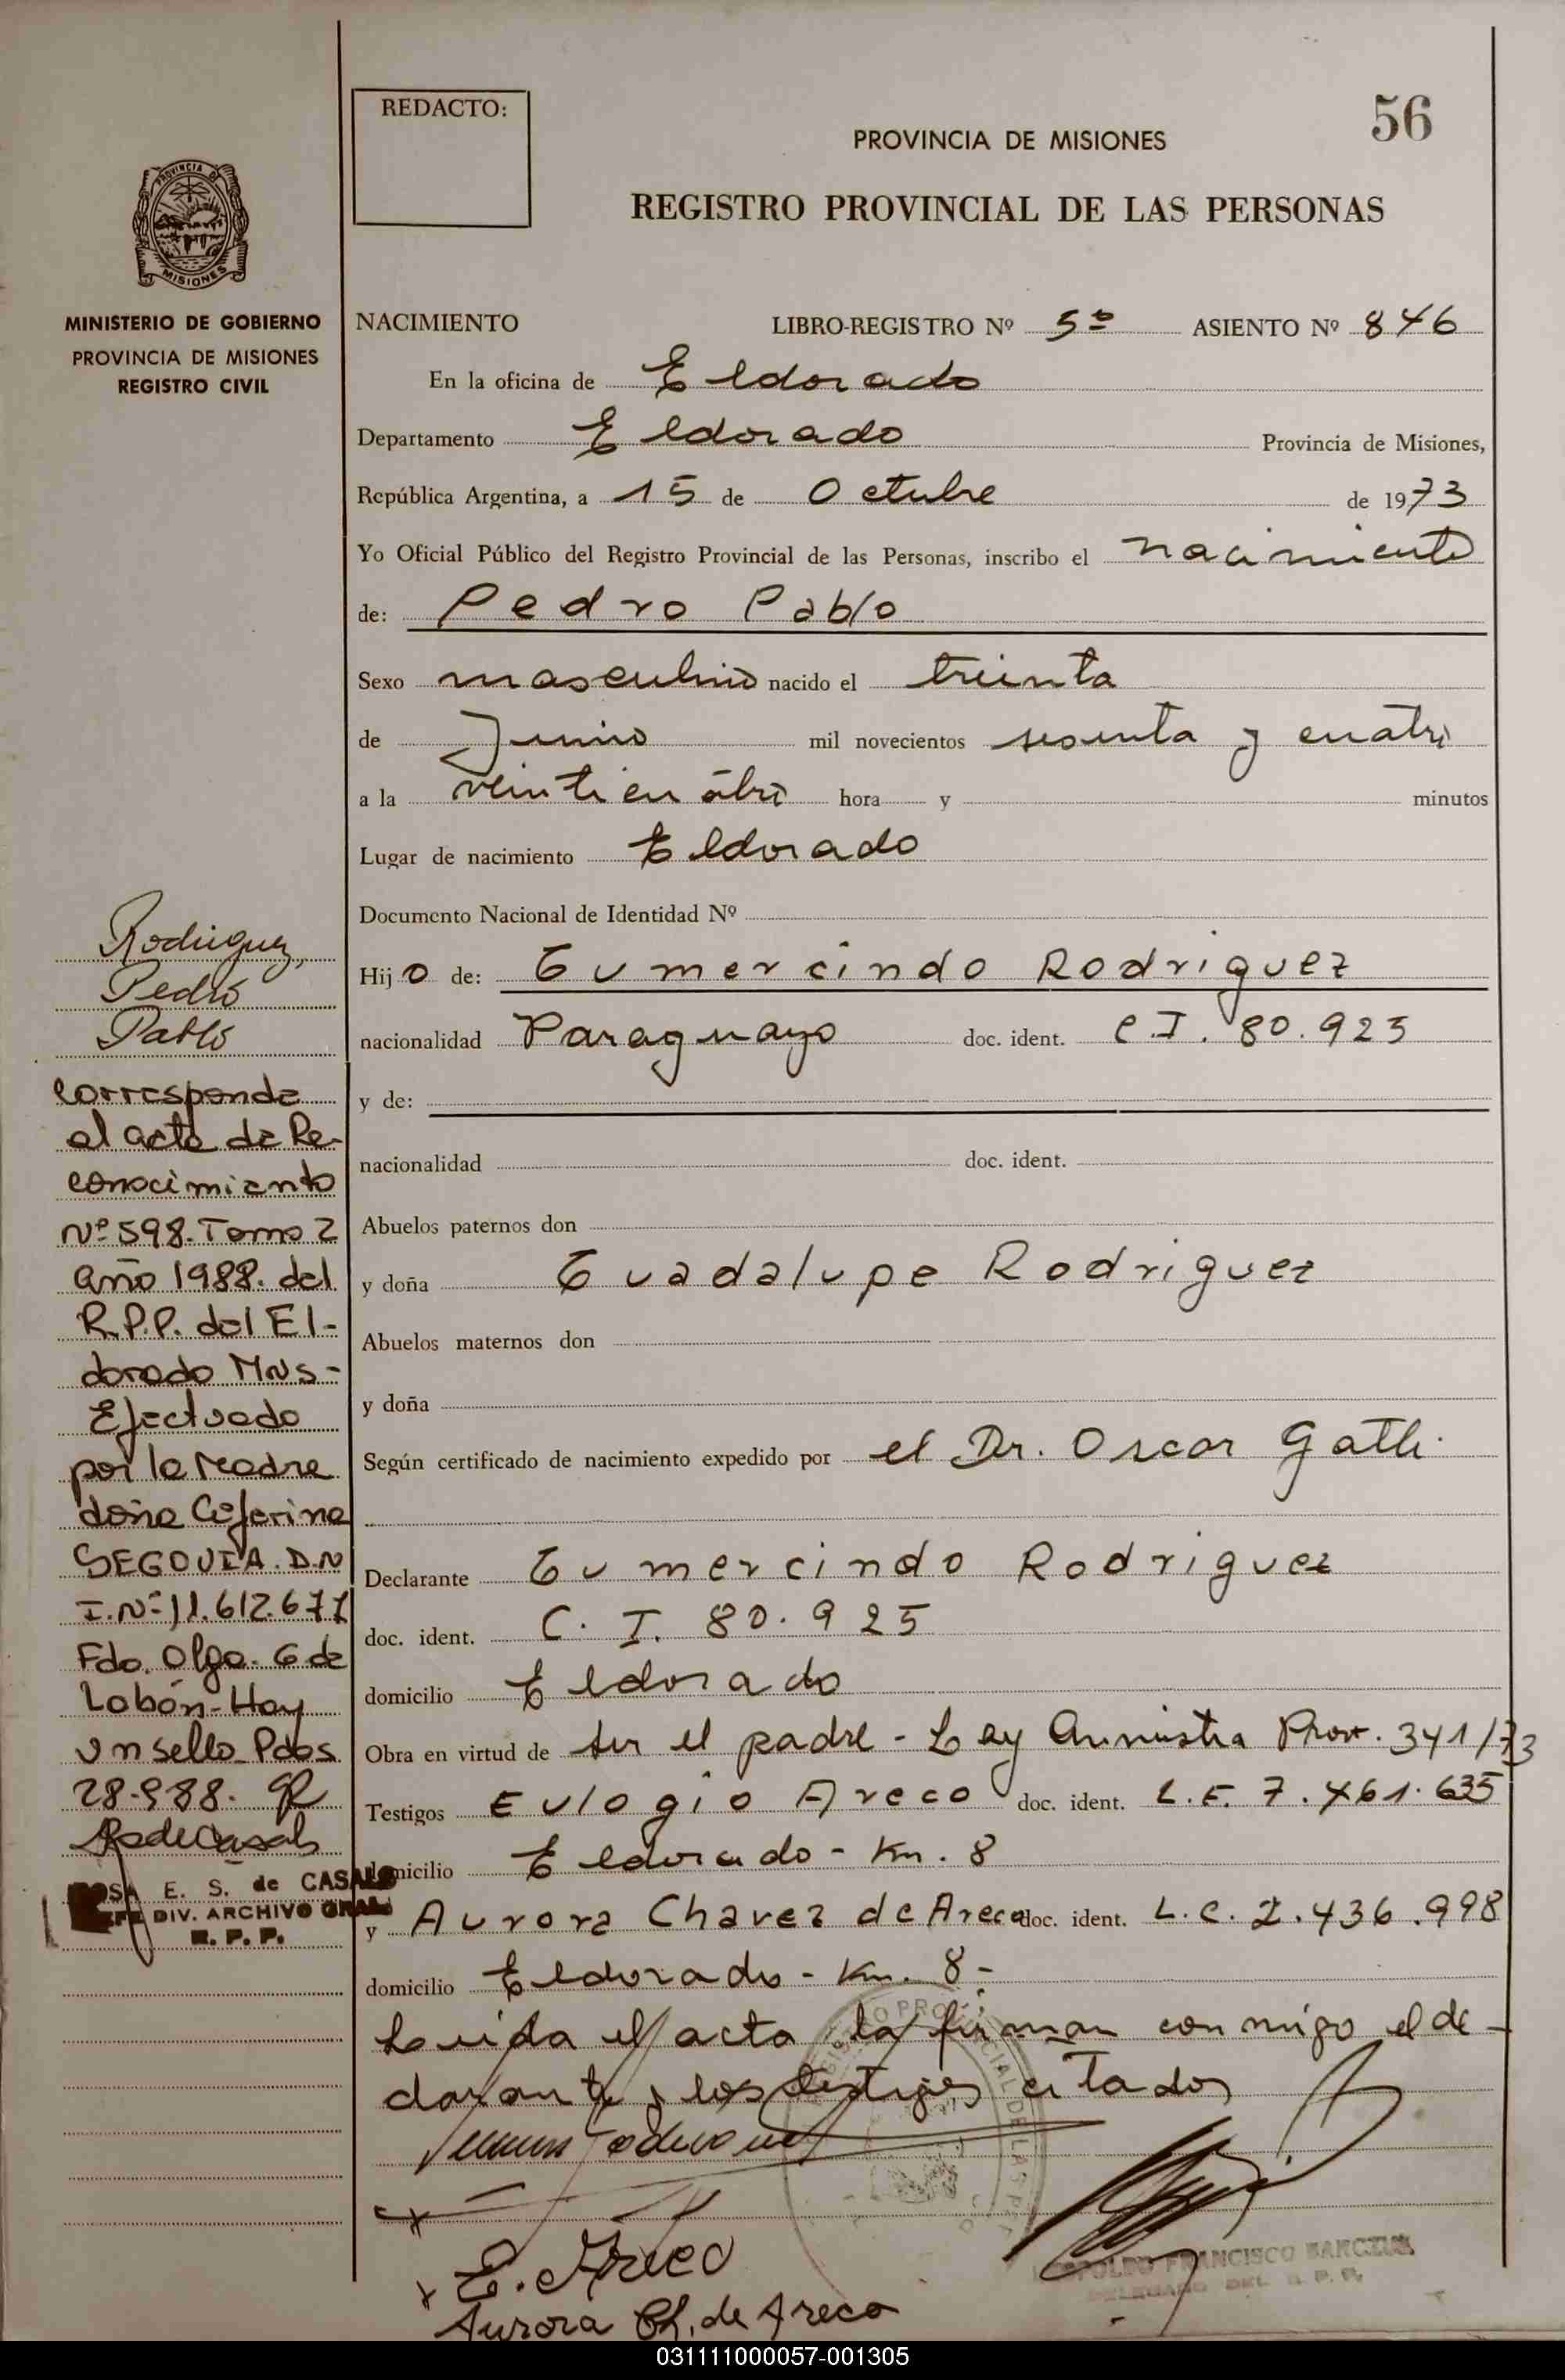 REDACTO:
56
PROVINCIA DE MISIONES
REGISTRO PROVINCIAL DE LAS PERSONAS
PROVINCIA DE
MISIONES
MINISTERIO DE GOBIERNO
PROVINCIA DE MISIONES
REGISTRO CIVIL
NACIMIENTO LIBRO-REGISTRO Nº 5º ASIENTO Nº 846
En la oficina de Eldorado
Departamento Eldorado Provincia de Misiones,
República Argentina, a 15 de Octubre de 1973
Yo Oficial Público del Registro Provincial de las Personas, inscribo el nacimiento
de: Pedro Pablo
Sexo masculino nacido el treinta
de Junio mil novecientos sesenta y cuatro
a la veinticuatro hora y minutos
Lugar de nacimiento Eldorado
Documento Nacional de Identidad Nº
Hijo de: Gumercindo Rodriguez
nacionalidad Paraguayo doc. ident. C.I. 80.925
y de:
nacionalidad doc. ident.
Abuelos paternos don
y doña Guadalupe Rodriguez
Abuelos maternos don
y doña
Según certificado de nacimiento expedido por el Dr. Oscar Gatti
Declarante Gumercindo Rodriguez
doc. ident. C. I. 80.925
domicilio Eldorado
Obra en virtud de ser el padre - Ley Amnistia Prov. 341/73
Testigos Eulogio Areco doc. ident. L.E. 7.461.635
domicilio Eldorado - Km. 8
y Aurora Chavez de Areco doc. ident. L.C. 2.436.998
domicilio Eldorado - Km. 8 -
Leida el acta la firman conmigo el de-
clarante y los testigos citados
E. Areco
Aurora Ch. de Areco
LEOPOLDO FRANCISCO
DELEGADO DEL R. P. P.
Rodriguez,
Pedro
Pablo
Corresponde
al acta de Re-
conocimiento
Nº 598. Tomo 2
año 1988. del
R.P.P. del El-
dorado Mns-
Efectuado
por la Madre
doña Ceferina
SEGOVIA. D.N
I.Nº 11.612.677
Fdo. Olga. G de
Lobón - Hay
un sello. Pdas.
28-9-88.
ROSA E. S. de CASALS
JEFE DIV. ARCHIVO GRAL
R. P. P.
031111000057-001305